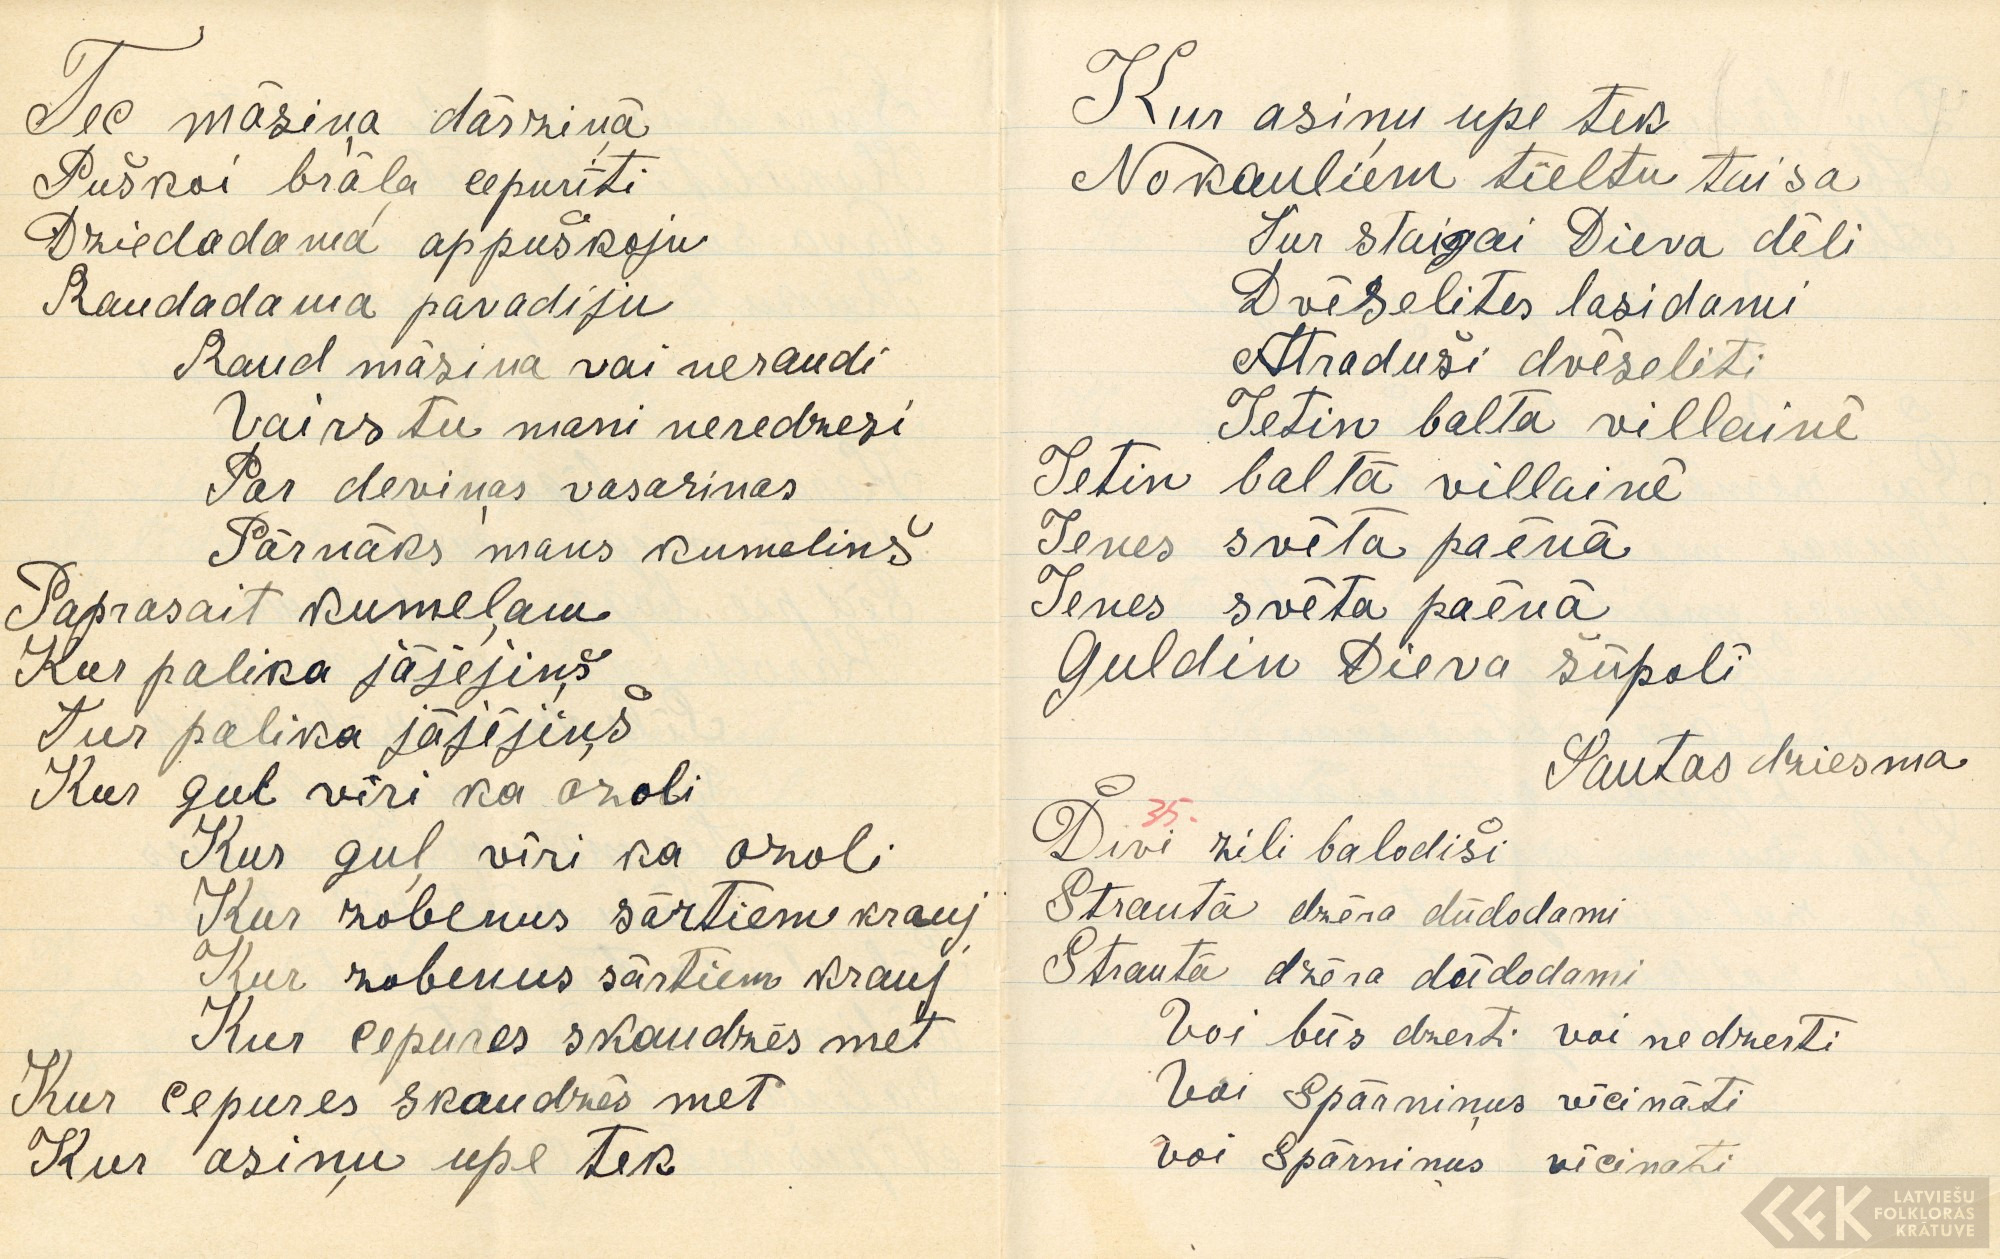 Tec māsiņa dārziņā
Puškoi brāļa cepurīti
Dziedadama appuškoju
Raudadama pavadiju
Raud māsiņa vai neraudi
Vairs tu mani neredzesi
Par deviņas vasarinas
Pārnāks mans kumelinš
Paprasait kumeļam
Kur palika jājejiņš
Tur palika jājējiņš
Kur guļ vīri ka ozoli
Kur guļ vīri ka ozoli
Kur zobenus sārtiem krauj
Kur zobenus sārtiem krauj
Kur cepures skaudzēs met
Kur cepures skaudzēs met
Kur asiņu upe tek
Kur asiņu upe tek
No kauliem tieltu taisa
Tur staigai Dieva dēli
Dvēselites lasidami
Atraduši dvēseliti
Ietin balta villainē
Ietin baltā villainē
Ienes svētā paēnā
Ienes svēta paēnā
Guldin Dieva šūpolī
Tautas dziesma
35.
Divi zili balodiši
Strautā dzēra dūdodami
Strautā dzēra dūdodami
Voi būs dzerti voi nedzerti
Voi spārniņus vicināti
Voi spārniņus vicinati
LATVIEŠU
FOLKLORAS
KRĀTUVE